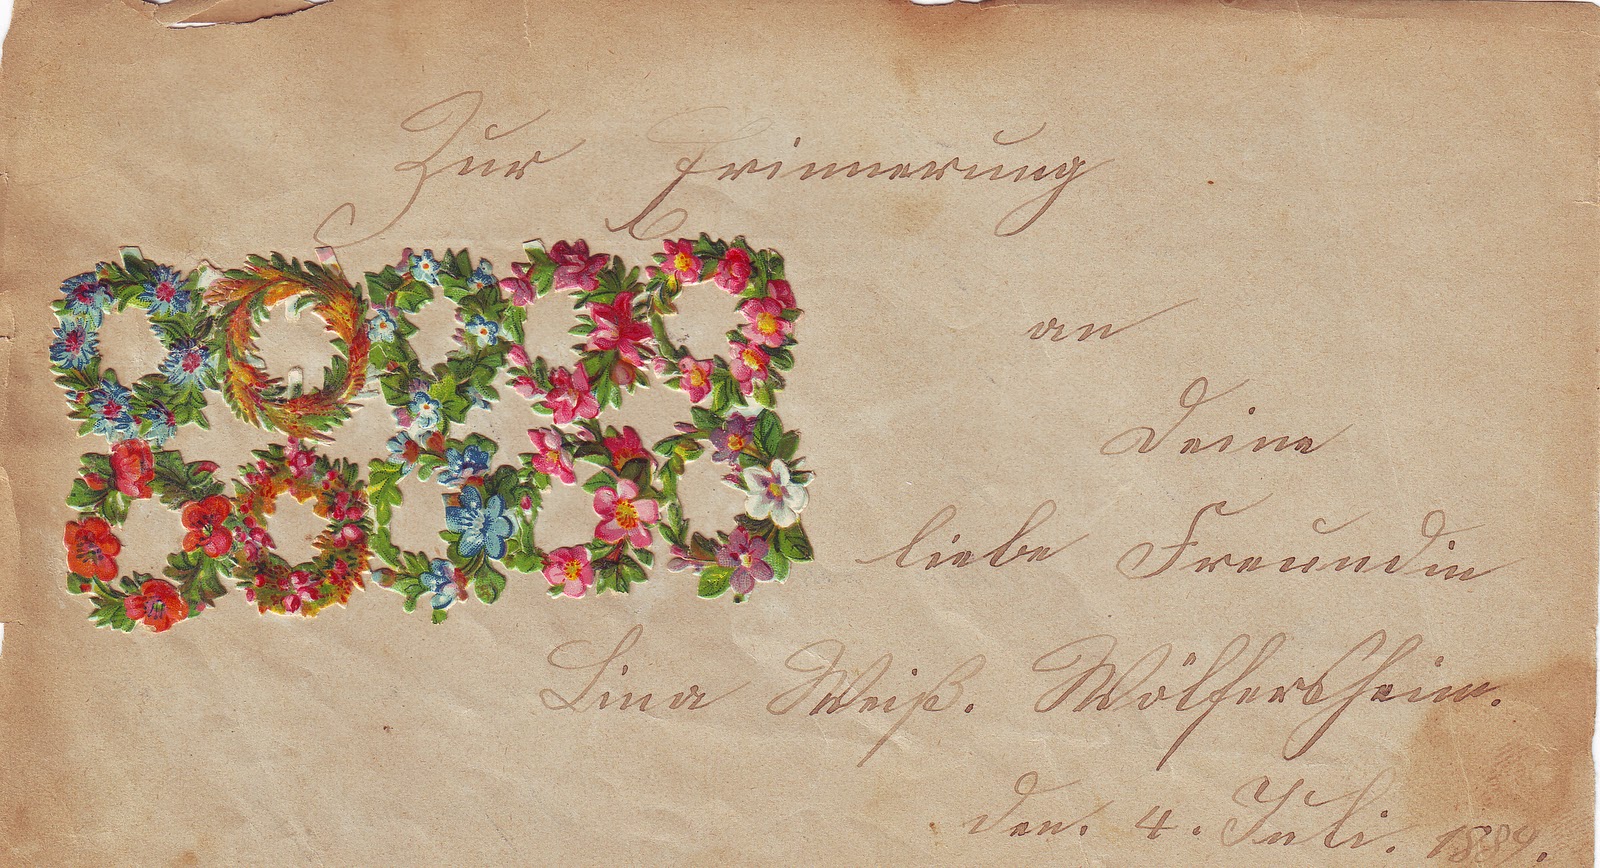 Zur Erinnerung
an
Deine
liebe Freundin
Lina Weiß. Wölfersheim.
den. 4. Juli. 1889.